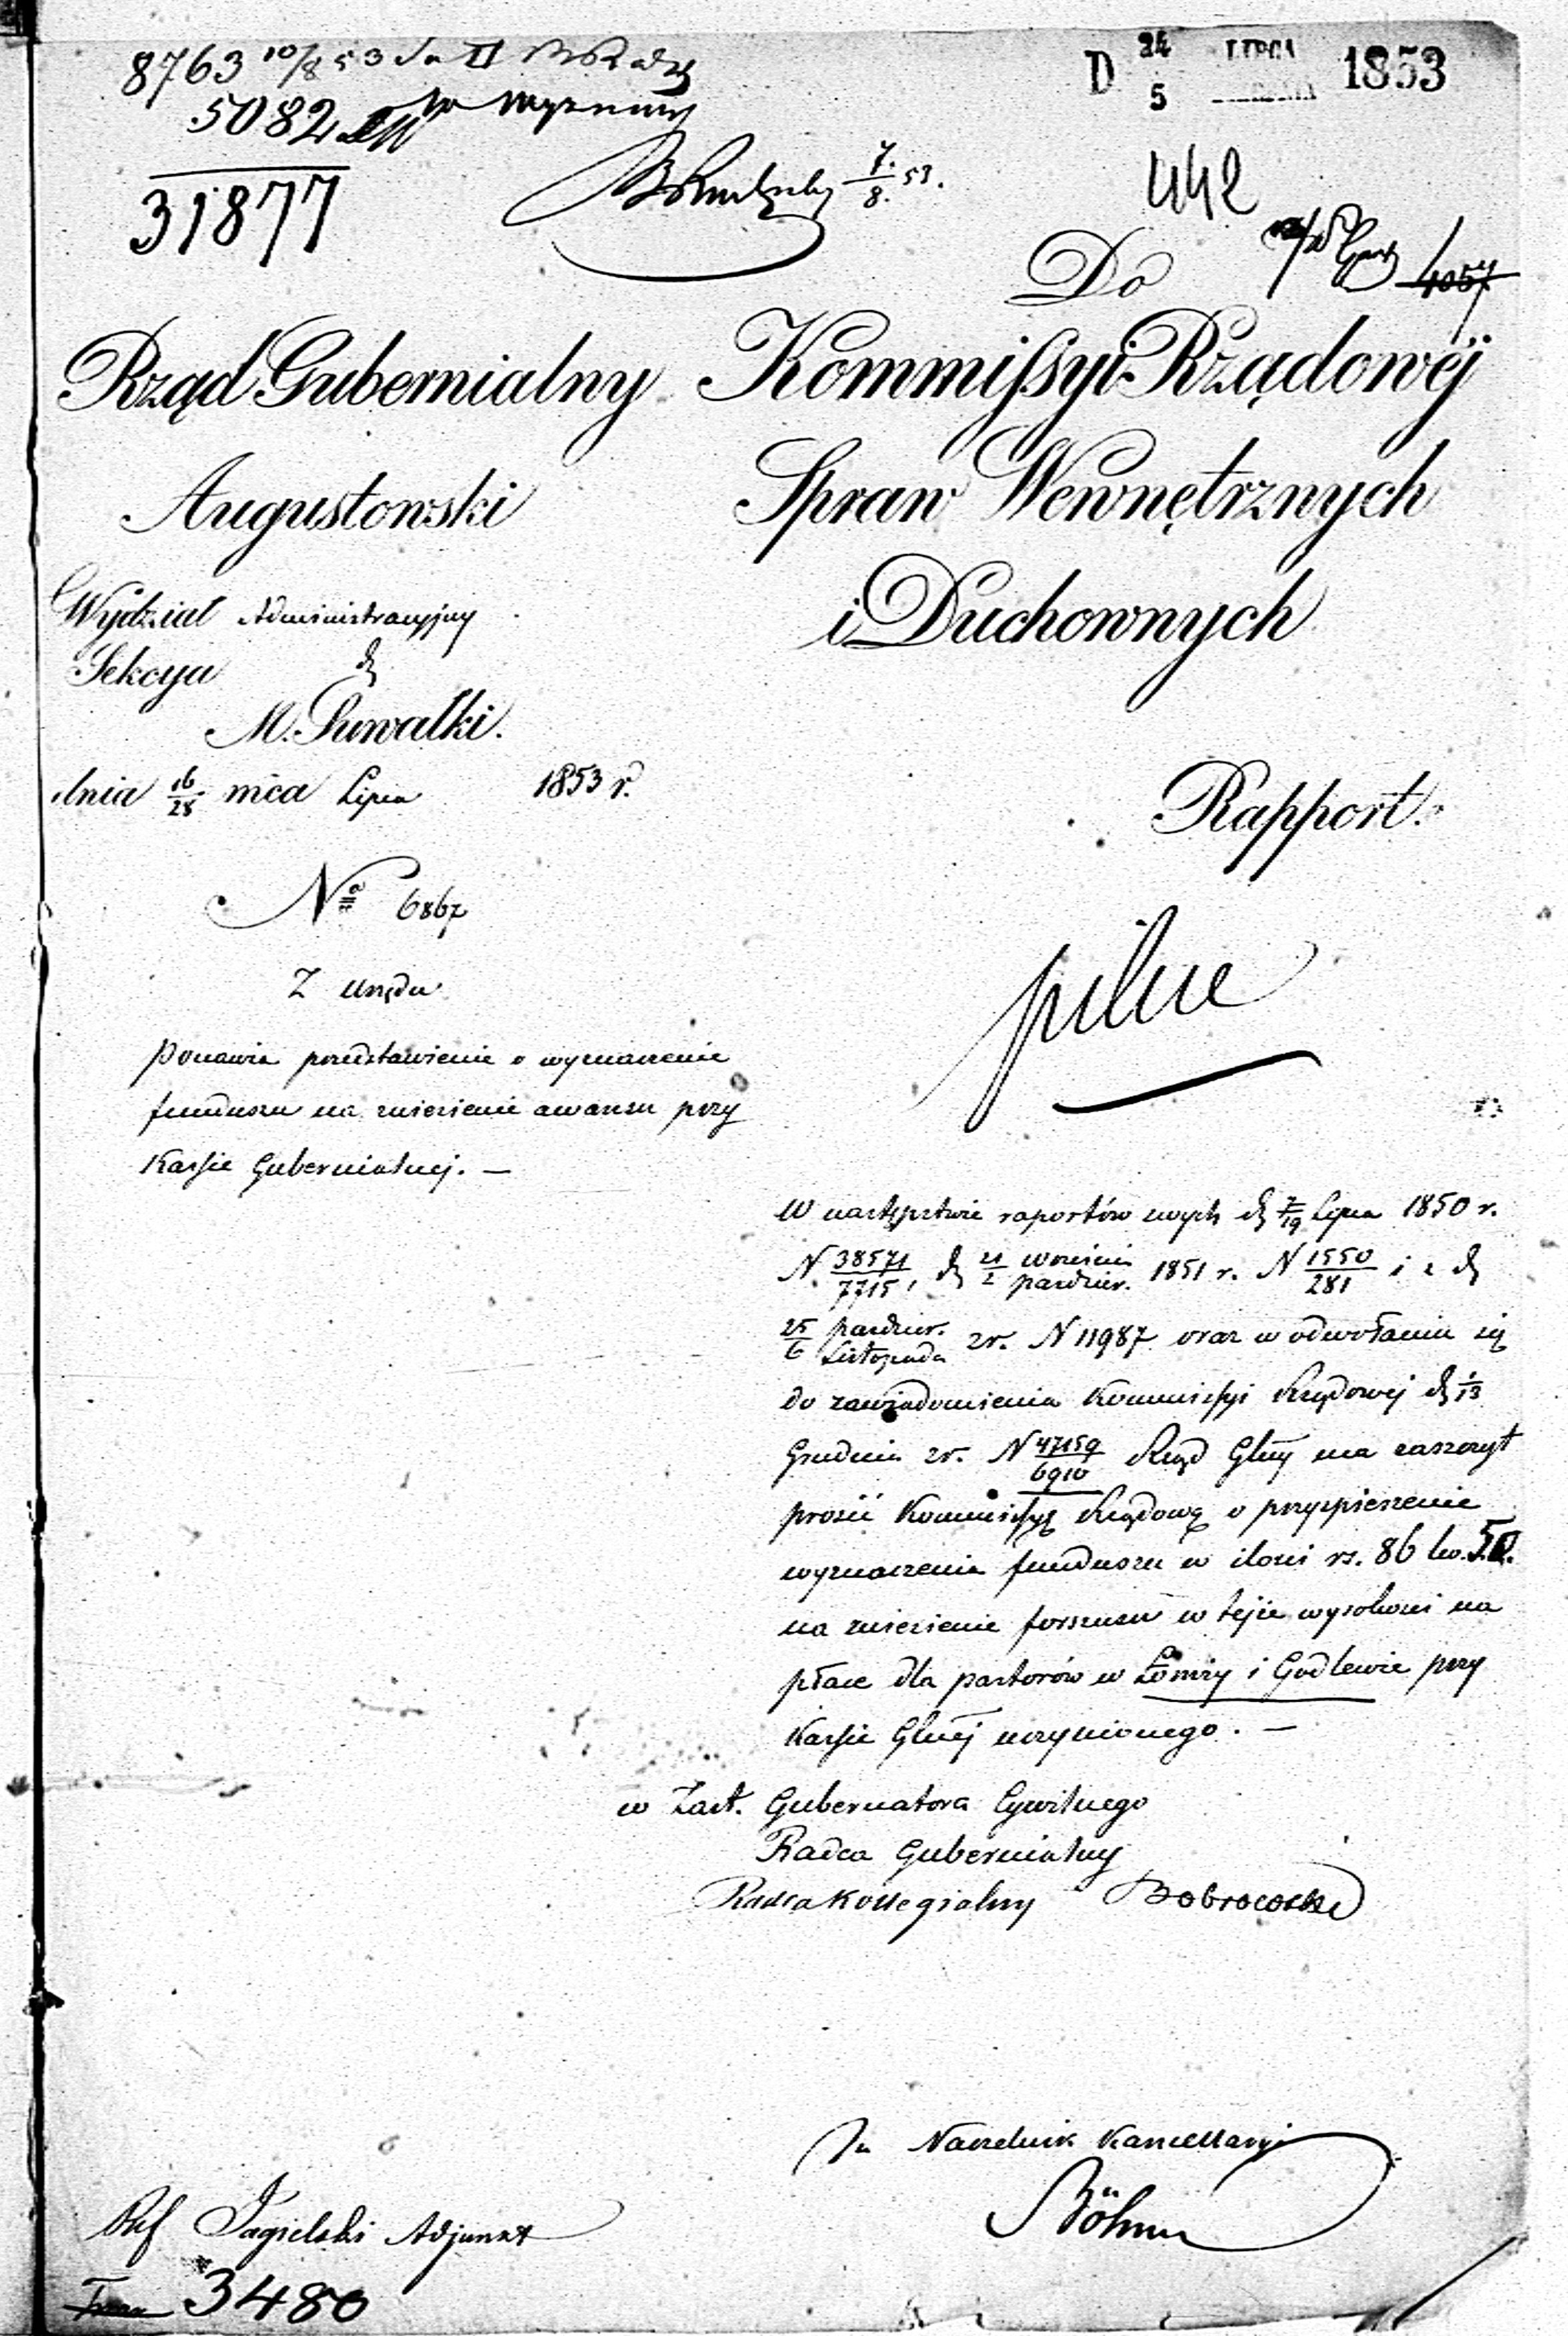 8763 10/8 53 do II
5082
31877
D 24/5 LIPCA 1853
7/8 53.
442
4057
Do
Rząd Gubernialny
Augustowski
Wydział Administracyjny
Sekcya
M. Suwałki.
dnia 16/28 mca Lipca 1853 r.
Nro 6867
Z Urzędu
Ponawia przedstawienie o wyznaczenie
funduszu na zniesienie awansu przy
Kassie Gubernialnej. —
Kommissyi Rządowéj
Spraw Wewnętrznych
i Duchownych
Rapport.
pilne
W następstwie raportów swych d. 7/19 Lipca 1850 r.
N 38571/7715, d. 21/2 września/paździer. 1851 r. N 1550/281 i z d.
25/6 paździer./Listopada zr. N 11987 oraz w odwołaniu się
do zawiadomienia Kommissyi Rządowej d. 1/13
Grudnia zr. N 47159/6910 Rząd Glny ma zaszczyt
prosić Kommissyę Rządową o przyspieszenie
wyznaczenia funduszu w ilości rs. 86 ko. 50.
na zniesienie forszusu w tejże wysokości na
płace dla pastorów w Łomży i Godlewie przy
Kassie Glnéj uczynionego. —
w Zast. Gubernatora Cywilnego
Radca Gubernialny
Radca Kollegialny Bobrowski
Za Naczelnik Kancellaryi
Böhm
Ref Jagielski Adjunkt
3480